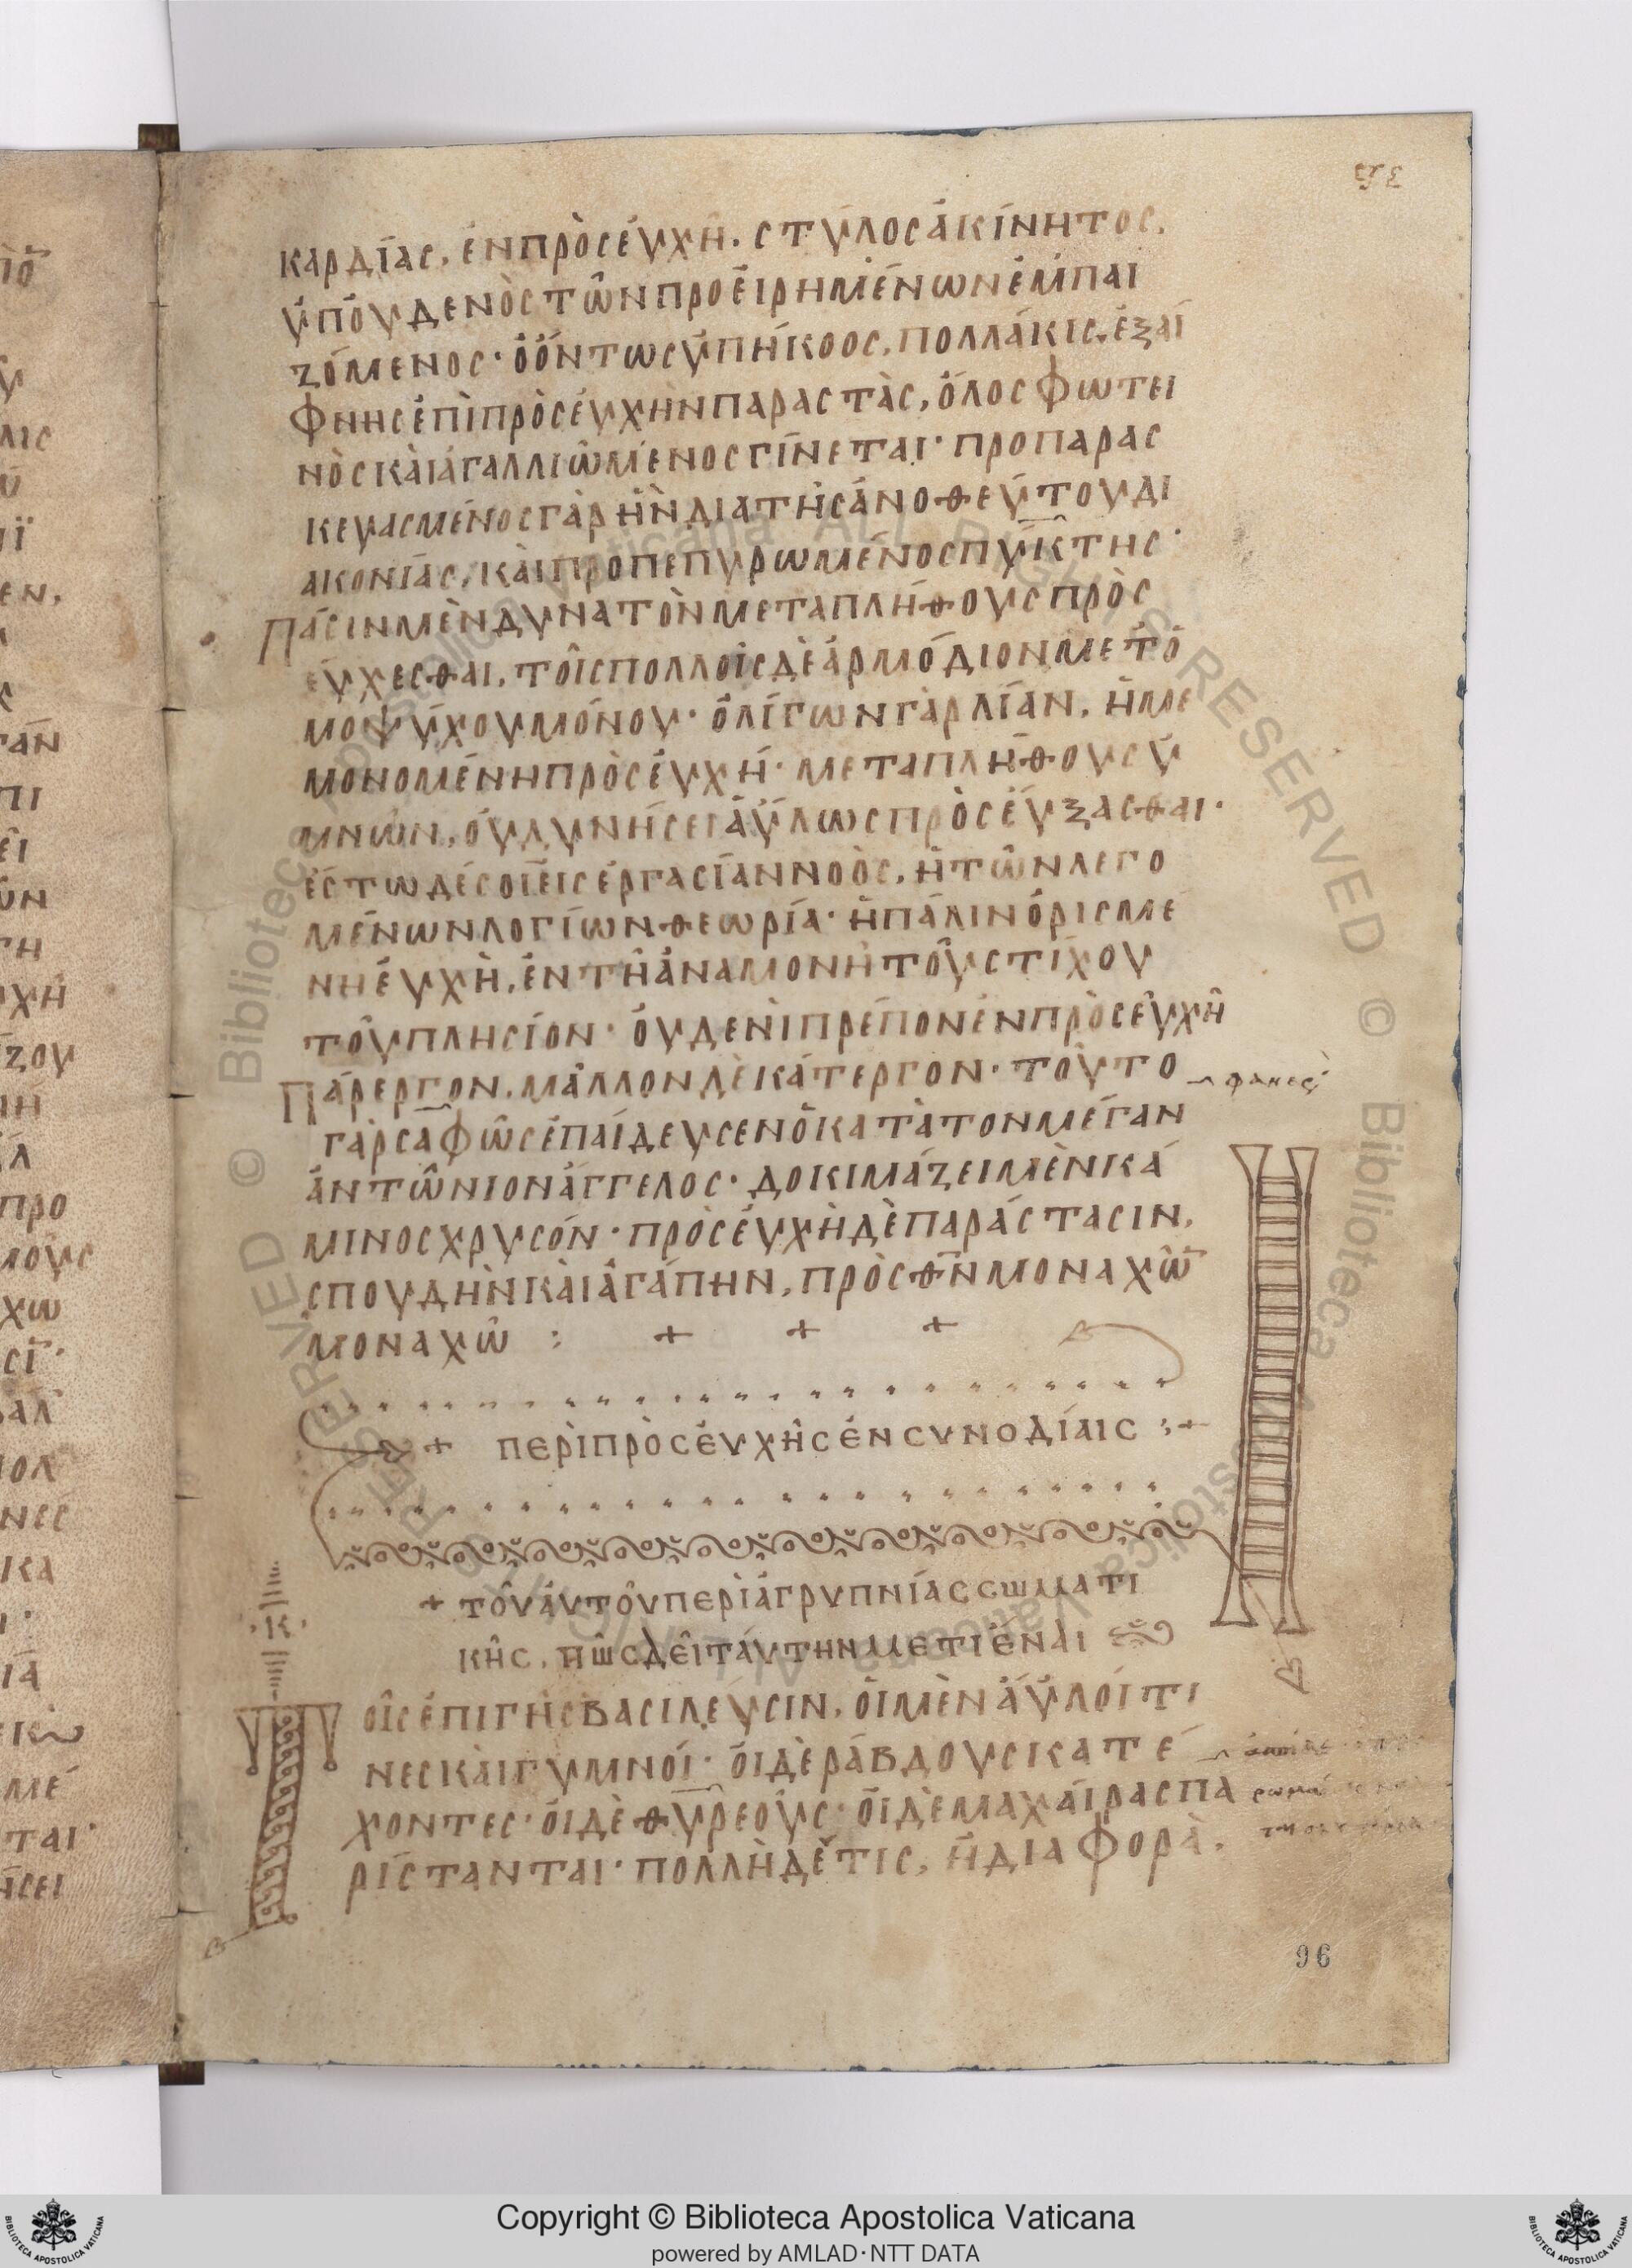 καρδΐας, ἐν πρὸσέυχῆ. στύλος ἀκίνητος.
ὑπόυδενὸς τῶν προἑιρημένων ἐμπαι
ζόμενος· ὁ ὄντως ὑπήκοος, πολλάκις ἐξαί
φνης ἐπὶ πρὸσέυχὴν παραστὰς, ὅλος φωτει
νὸς κὰι ἀγαλλιῶμενος γίνεται· προπαρας
κευασμένος γὰρ ἦν διατῆς ἀνοθεύτου δι
ακονίας, κὰι προπεπυρωμένος πύκτης·
Πάσιν μὲν δυνατὸν μεταπλήθους πρὸς
εύχεσθαι, τοῖς πολλοῖς δὲ ἁρμόδιον μετὁ
μοψύχου μόνου· ὀλίγων γὰρ λίαν, ἡ με
μονομένη πρὸσέυχή· μεταπλήθους ὑ
μνῶν, όυ δυνήσει ἀΰλως πρὸσέυξασθαι·
ἔστω δέ σοι ἐις ἐργασίαν νοὸς, ἡ τῶν λεγο
μένων λογίων θεωρία· ἢ πάλιν ὁρισμέ
νη ἐυχὴ, ἐν τῆ ἀναμονῆ τοῦ στίχου
τοῦ πλησίον· όυδενὶ πρέπον ἐν πρὸσευχῆ
Πάρεργον, μᾶλλον δὲ κάτεργον· τοῦτο
γὰρ σαφῶς ἐπαίδευσεν ὁ κατὰ τον μέγαν
ἀντῶνιον ἄγγελος· δοκιμάζει μὲν κά
μινος χρυσόν· πρὸσέυχὴ δὲ παράστασιν,
σπουδὴν κὰι ἀγάπην, πρὸς θν μοναχῶ
μοναχῶ : + + +
+ περὶ πρὸσέυχῆς ἐν συνοδίαις :+
+ τοῦ ἀυτοῦ περὶ ἀγρυπνίας σωματι
κῆς, πῶς δεῖ τάυτην μετιέναι
·κ·
Τοῖς ἐπι γῆς βασιλεῦσιν, ὁι μὲν ἄϋλοί τι
νες κὰι γυμνοί· ὁι δὲ ράβδους κατέ
χοντες· ὁι δὲ θυρεοὺς· ὁι δὲ μαχάιρας πα
ρίστανται· πολλὴ δέ τις, ἡ διαφορὰ,
96
Copyright © Biblioteca Apostolica Vaticana
powered by AMLAD·NTT DATA